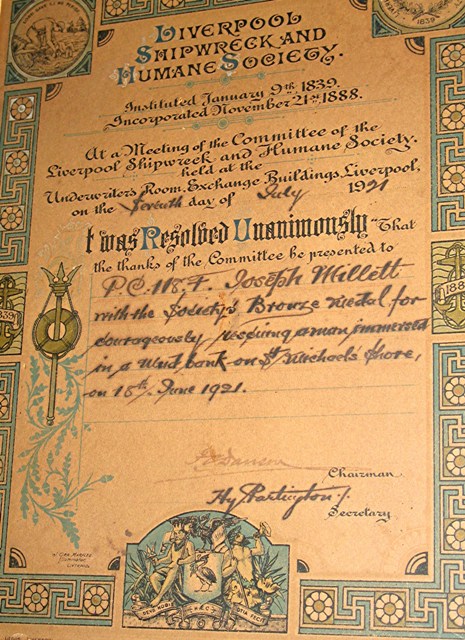 Liverpool
Shipwreck and
Humane Society.
Instituted January 9th 1839.
Incorporated November 21st 1888.
At a Meeting of the Committee of the
Liverpool Shipwreck and Humane Society.
held at the
Underwriters Room, Exchange Buildings, Liverpool,
on the Seventh day of July 1921
It was Resolved Unanimously "That
the thanks of the Committee be presented to
P.C. 118, F. Joseph Millett
with the Society's Bronze Medal for
courageously rescuing a man immersed
in a mud bank on St Michaels Shore,
on 15th June 1921.
Chairman
Hy Partington
Secretary
1839
188
1839
DEUS NOBIS HAEC OTIA FECIT